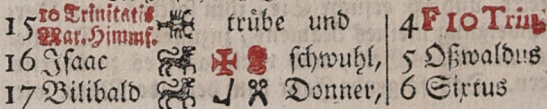 15 10 Trinitatis trübe und 4 F 10 Trin
Mar. Himmf.
16 Isaac schwuhl, 5 Oßwaldus
17 Bilibald Donner, 6 Sixtus